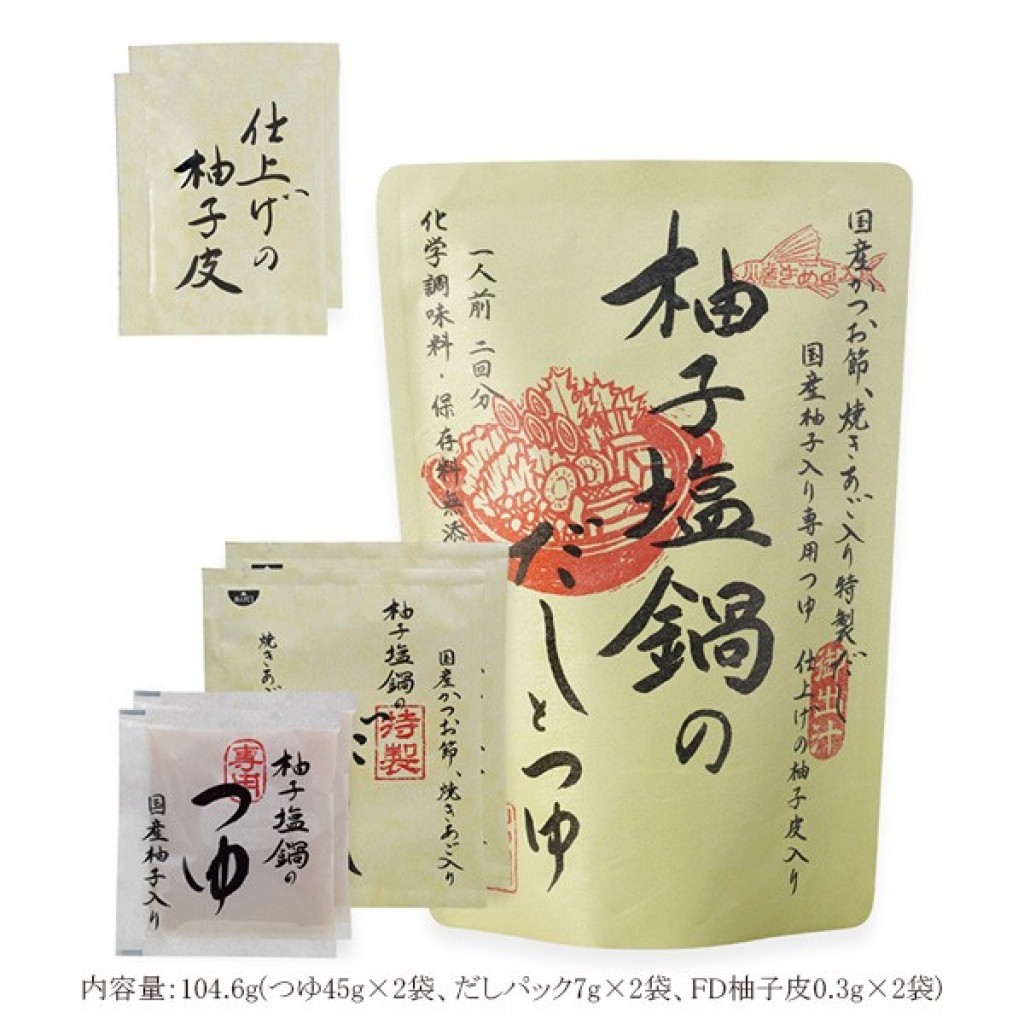 仕上げの
柚子皮
国産かつお節、焼きあご入り特製だし
国産柚子入り専用つゆ 仕上げの柚子皮入り
柚子塩鍋の
だしとつゆ
一人前 二回分
化学調味料・保存料無添
国産かつお節、焼きあご入り
柚子塩鍋の
特製
焼きあご
柚子塩鍋の
専用
つゆ
国産柚子入り
内容量:104.6g(つゆ45g×2袋、だしパック7g×2袋、FD柚子皮0.3g×2袋)